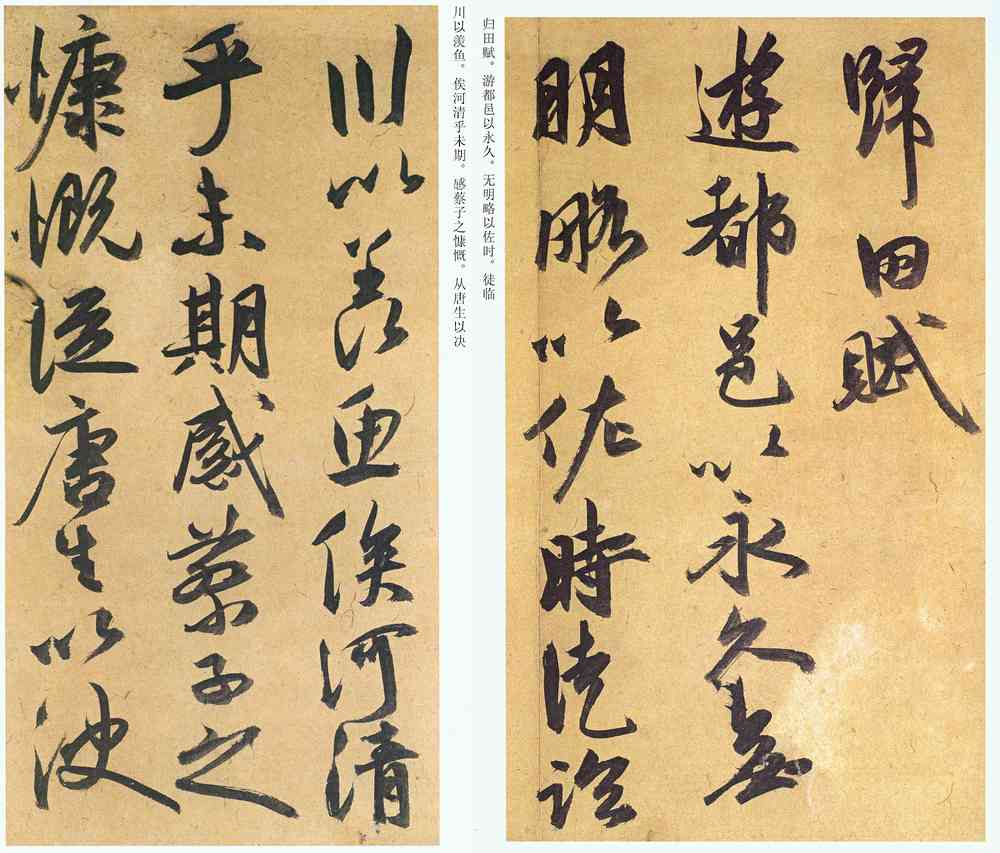 歸田賦
遊都邑以永久無
明略以佐時徒臨
归田赋。游都邑以永久。无明略以佐时。徒临
川以羡鱼。俟河清乎未期。感蔡子之慷慨。从唐生以决
川以羡魚俟河清
乎未期感蔡子之
慷慨從唐生以決